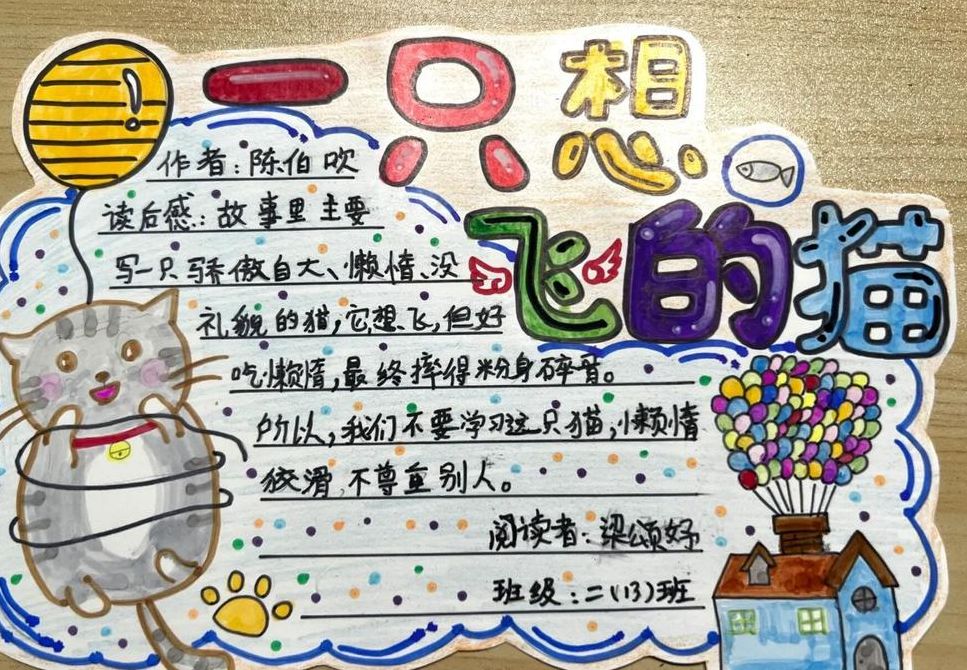 一只想
飞的猫
作者：陈伯吹
读后感：故事里主要
写一只骄傲自大、懒惰、没
礼貌的猫，它想飞，但好
吃懒惰，最终摔得粉身碎骨。
所以，我们不要学习这只猫，懒惰
狡滑，不尊重别人。
阅读者：梁颂妤
班级：二（13）班